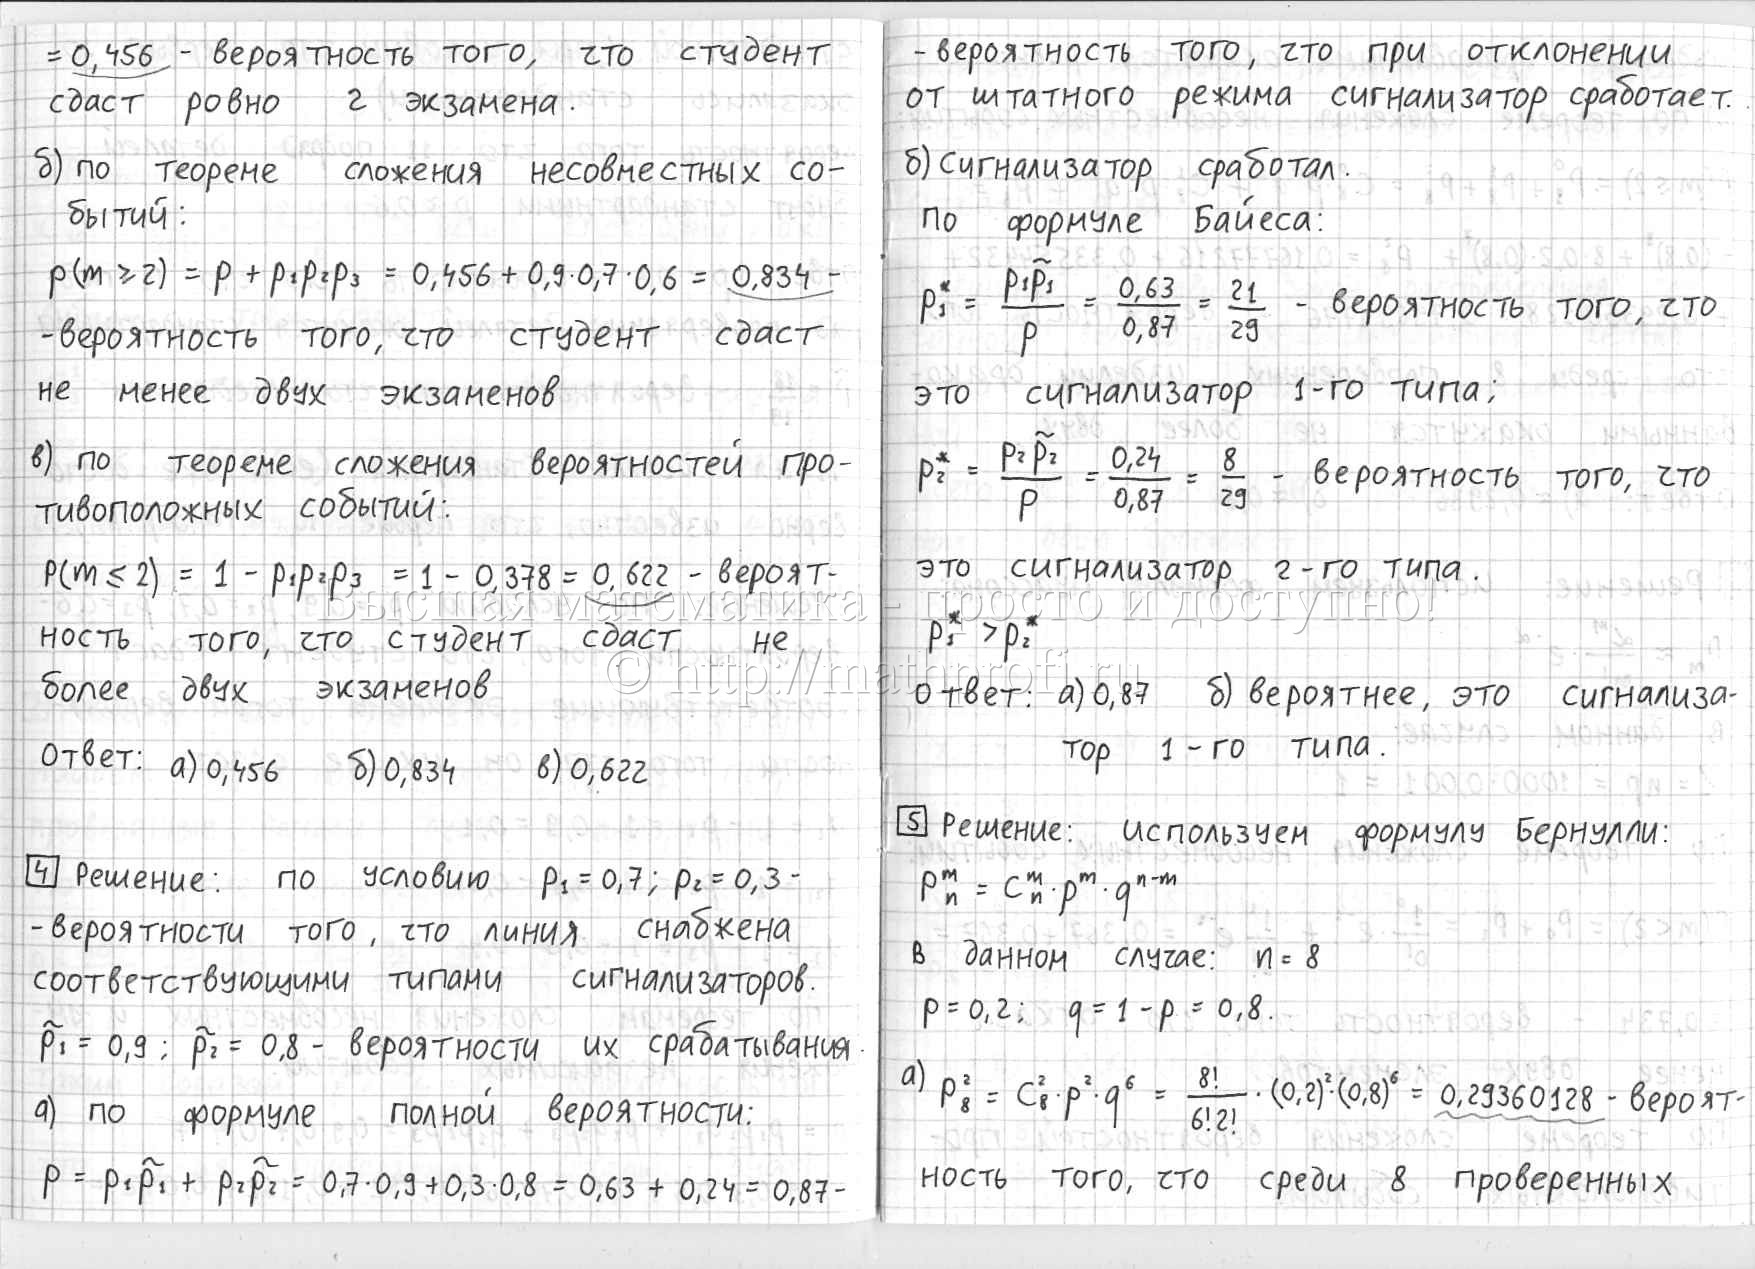 = 0,456 - вероятность того, что студент
сдаст ровно 2 экзамена.
б) по теореме сложения несовместных со-
бытий:
p(m ≥ 2) = p + p₁p₂p₃ = 0,456 + 0,9·0,7·0,6 = 0,834 -
-вероятность того, что студент сдаст
не менее двух экзаменов
в) по теореме сложения вероятностей про-
тивоположных событий:
P(m ≤ 2) = 1 - p₁p₂p₃ = 1 - 0,378 = 0,622 - вероят-
ность того, что студент сдаст не
более двух экзаменов
Ответ: а) 0,456 б) 0,834 в) 0,622
4 Решение: по условию p₁ = 0,7; p₂ = 0,3 -
- вероятности того, что линия снабжена
соответствующими типами сигнализаторов.
p̃₁ = 0,9; p̃₂ = 0,8 - вероятности их срабатывания.
а) по формуле полной вероятности:
p = p₁p̃₁ + p₂p̃₂ = 0,7·0,9 + 0,3·0,8 = 0,63 + 0,24 = 0,87 -
- вероятность того, что при отклонении
от штатного режима сигнализатор сработает.
б) Сигнализатор сработал.
По формуле Байеса:
p₁* = p₁p̃₁/p = 0,63/0,87 = 21/29 - вероятность того, что
это сигнализатор 1-го типа;
p₂* = p₂p̃₂/p = 0,24/0,87 = 8/29 - вероятность того, что
это сигнализатор 2-го типа.
p₁* > p₂*
Ответ: а) 0,87 б) вероятнее, это сигнализа-
тор 1-го типа.
5 Решение: используем формулу Бернулли:
Pₙᵐ = Cₙᵐ · pᵐ · qⁿ⁻ᵐ
В данном случае: n = 8
p = 0,2; q = 1 - p = 0,8.
а) P₈² = C₈² · p² · q⁶ = 8!/6!2! · (0,2)² · (0,8)⁶ = 0,29360128 - вероят-
ность того, что среди 8 проверенных
Высшая математика - просто и доступно!
© http://mathprofi.ru